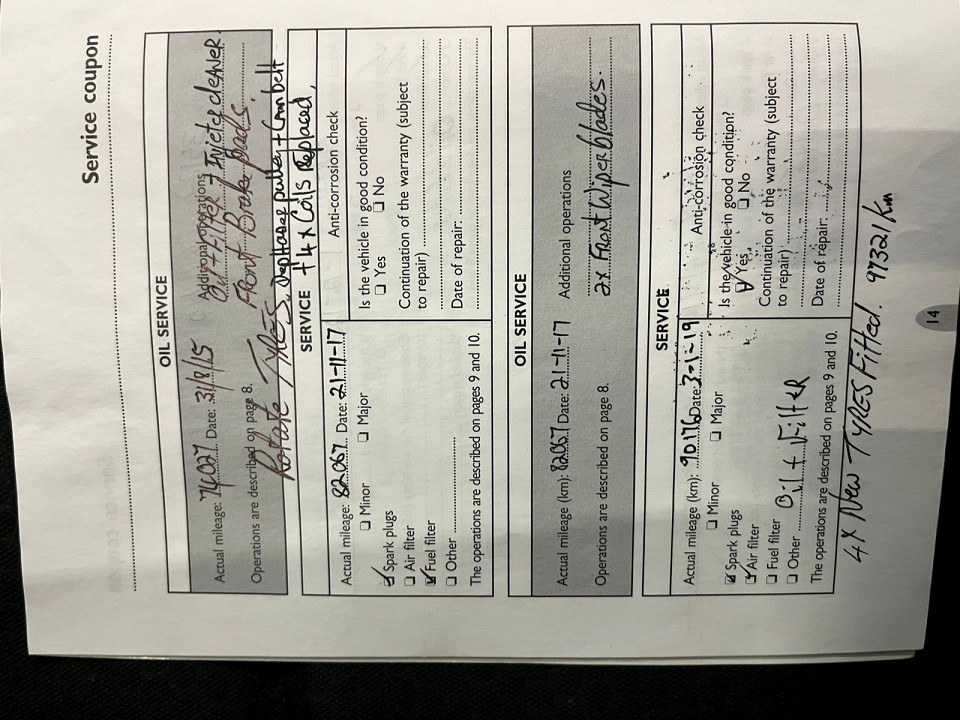 Service coupon
OIL SERVICE
Actual mileage: 74027 Date: 31/8/15
Additional operations
Oil + Filter + Injector cleaner.
Operations are described on page 8.
Front Brake pads.
Rotate Tyres, Dephaser pulley + Cambelt
SERVICE
+ 4 x Coils Replaced,
Actual mileage: 82067 Date: 21-11-17
☐ Minor ☐ Major
☑ Spark plugs
☐ Air filter
☑ Fuel filter
☐ Other
The operations are described on pages 9 and 10.
Anti-corrosion check
Is the vehicle in good condition?
☐ Yes ☐ No
Continuation of the warranty (subject
to repair)
Date of repair:
OIL SERVICE
Actual mileage (km): 82067 Date: 21-11-17
Operations are described on page 8.
Additional operations
2x Front Wiper blades.
SERVICE
Actual mileage (km): 90176 Date: 3-1-19
☐ Minor ☐ Major
☑ Spark plugs
☑ Air filter
☐ Fuel filter
☐ Other Oil + Filter
The operations are described on pages 9 and 10.
Anti-corrosion check
Is the vehicle in good condition?
☑ Yes ☐ No
Continuation of the warranty (subject
to repair)
Date of repair:
4x New TYRES Fitted. 97321 Km
14